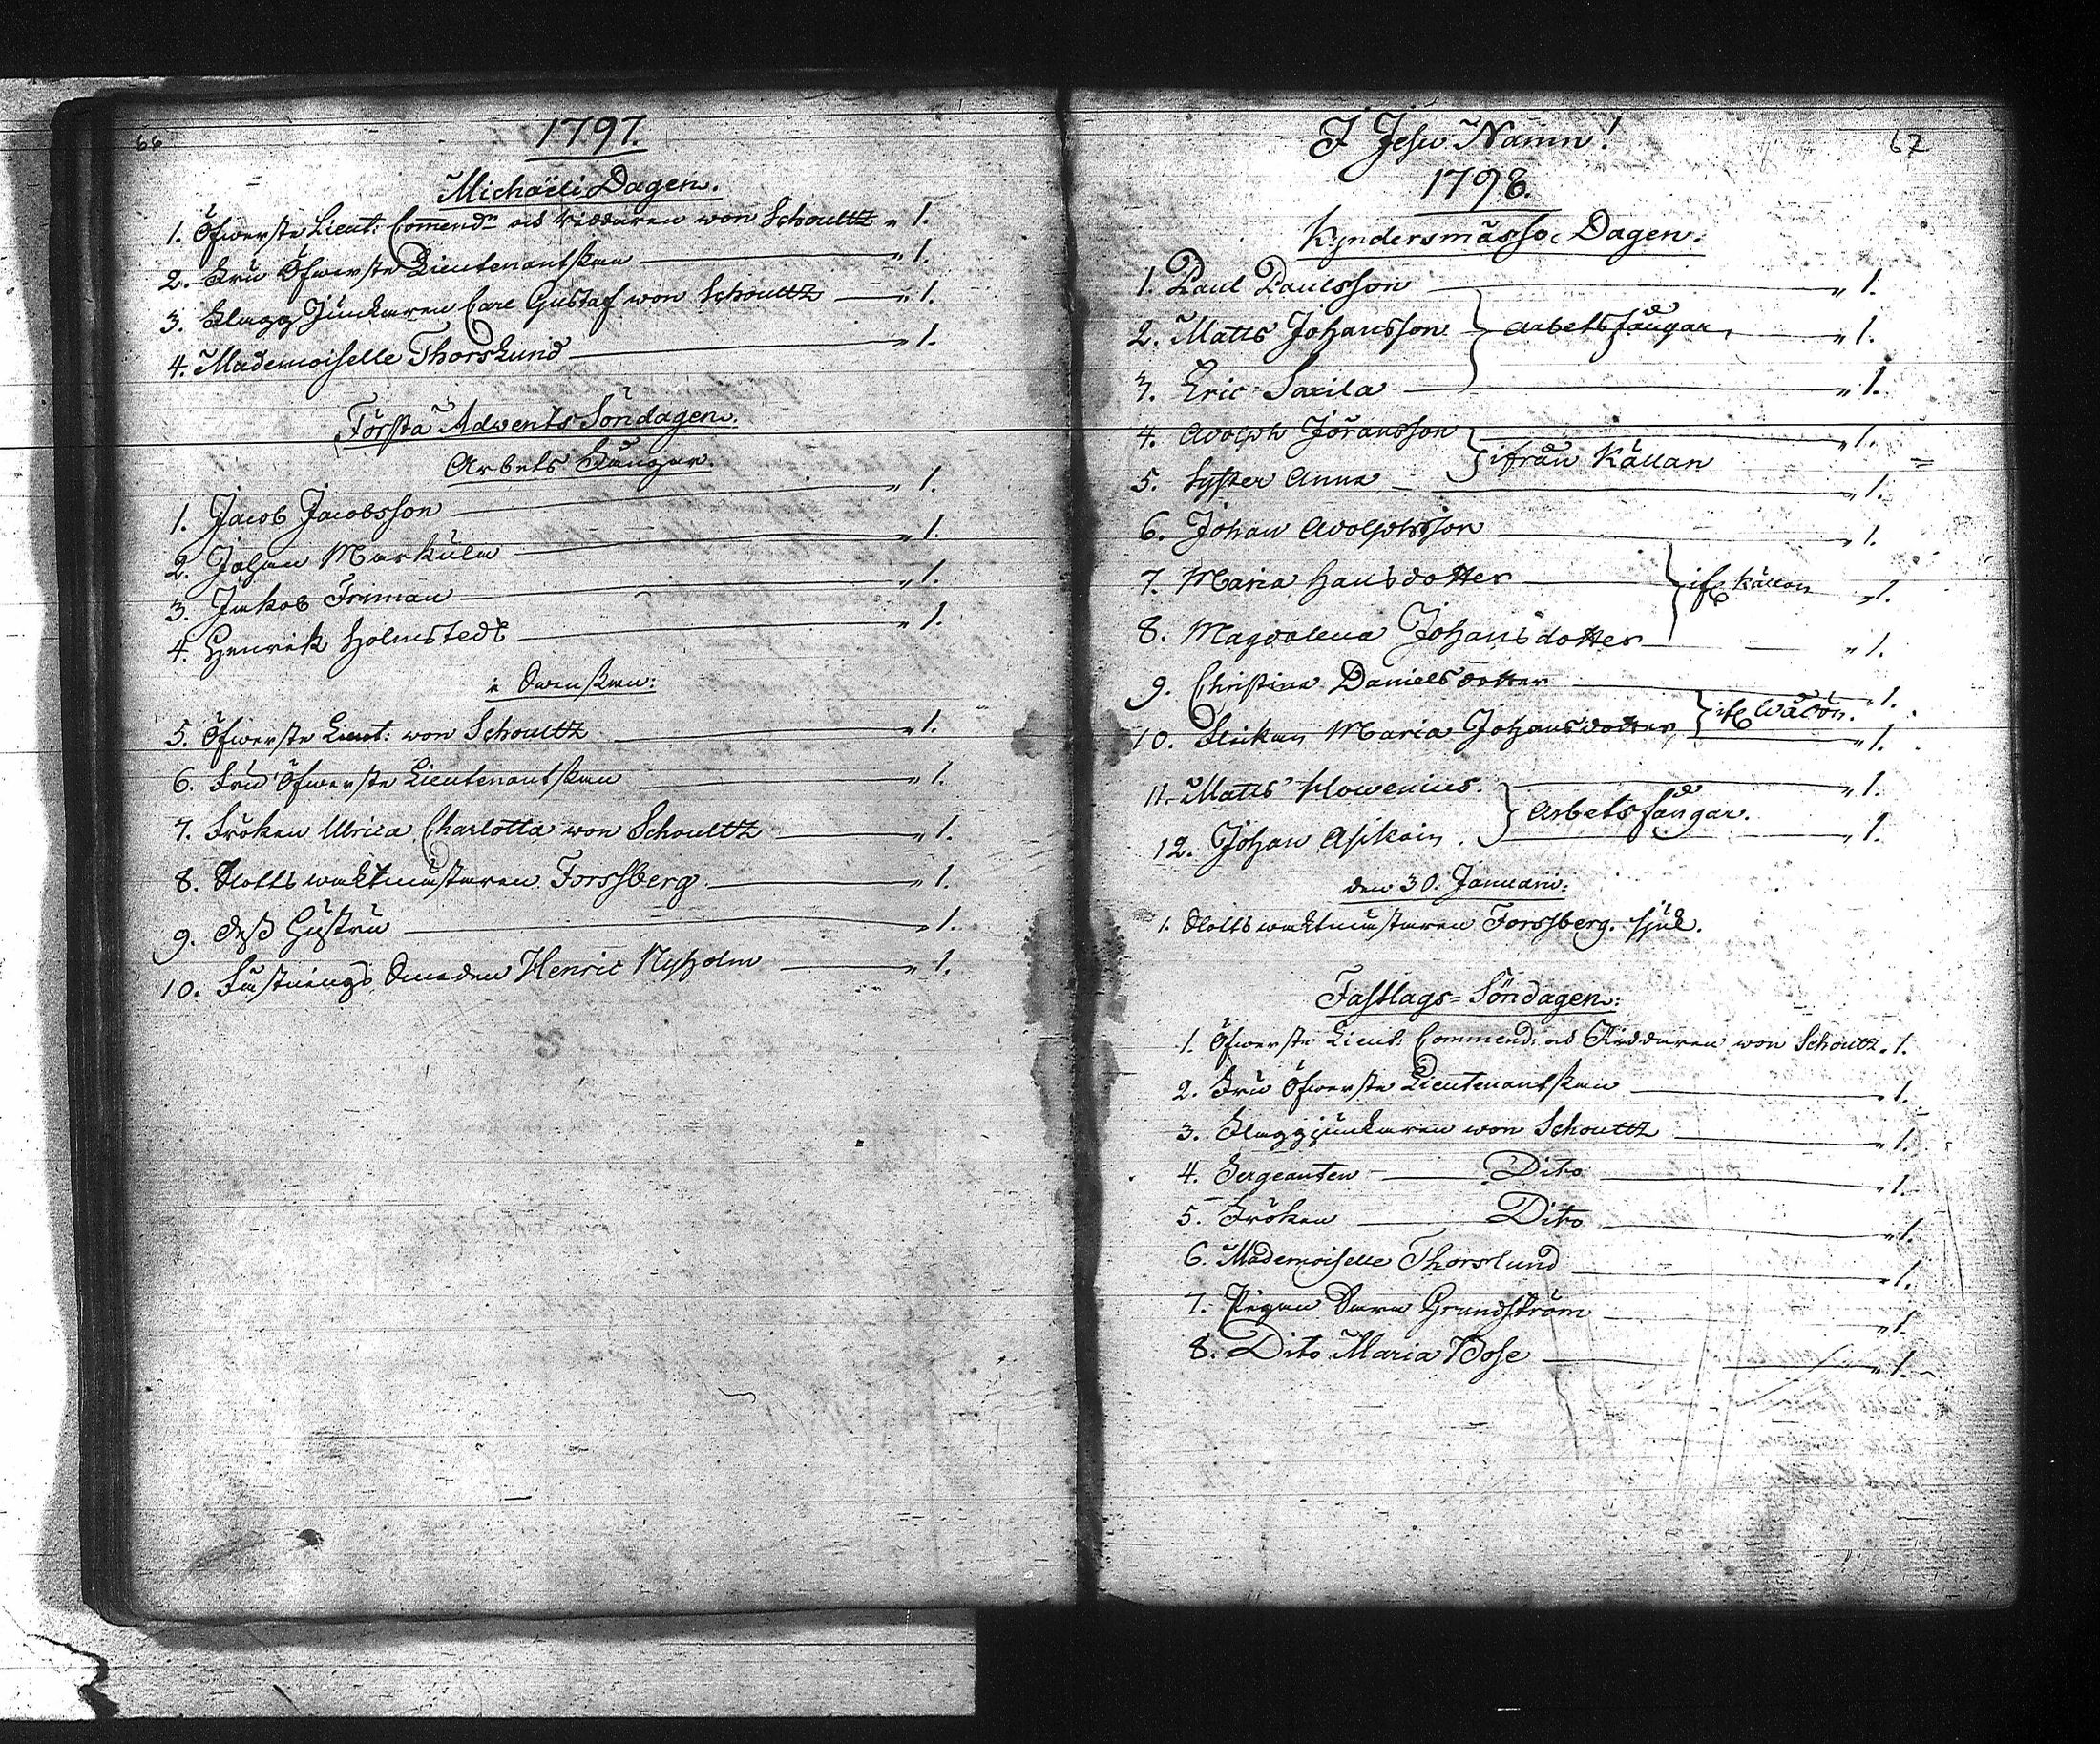 66
1797.
Michaëli Dagen.
1. Öfwerste Lieut: Com̅end: och Riddaren von Schoultz „ 1.
2. Fru Öfwerste Lieutenantskan „ 1.
3. Flagg Junkaren Carl Gustaf von Schoultz „ 1.
4. Mademoiselle Thorslund „ 1.
Första Adwents Söndagen.
Arbets Fångar.
1. Jacob Jacobsson „ 1.
2. Johan Markula „ 1.
3. Jakob Friman „ 1.
4. Henrik Holmstedt „ 1.
Swenskan:
5. Öfwerste Lieut: von Schoultz „ 1.
6. Fru Öfwerste Lieutenantskan „ 1.
7. Fröken Ulrica Charlotta von Schoultz „ 1.
8. Slotts wacktmästaren Forssberg „ 1.
9. dess Hustru „ 1.
10. Fästnings Smeden Henric Nyholm „ 1.
67
I Jesu Namn!
1798.
Kyndersmässo Dagen.
1. Paul Paulsson „ 1.
2. Matts Johansson } arbetsfångar „ 1.
3. Eric Saxila „ 1.
4. Adolph Joransson „ 1.
} ifrån Källan
5. Syster Anna „ 1.
6. Johan Adolphsson „ 1.
7. Maria Hansdotter } ifr Källan „ 1.
8. Magdalena Johansdotter „ 1.
9. Christina Danielsdotter „ 1.
10. Flickan Maria Johansdotter } ifr „ 1.
11. Matts „ 1.
} Arbetsfångar.
12. Johan Asikain „ 1.
den 30. Januarii.
1. Slotts wacktmästaren Forssberg. sjuk.
Fastlags= Söndagen:
1. Öfwerste Lieut: Commend: och Riddaren von Schoultz „ 1.
2. Fru Öfwerste Lieutenantskan „ 1.
3. Flaggjunkaren von Schoultz „ 1.
4. Sergeanten Dito „ 1.
5. Fröken Dito „ 1.
6. Mademoiselle Thorslund „ 1.
7. Pigan Sara Grundström „ 1.
8. Dito Maria Bose „ 1.